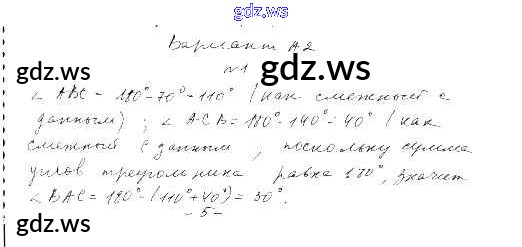 gdz.ws
Вариант А2
№1
gdz.ws gdz.ws
∠ ABC = 180° - 70° = 110° (как смежный с
данным) ; ∠ ACB = 180° - 140° = 40° (как
смежный с данным, поскольку сумма
углов треугольника равна 180°, значит
∠ BAC = 180° - (110° + 40°) = 30°.
- 5 -
gdz.ws gdz.ws